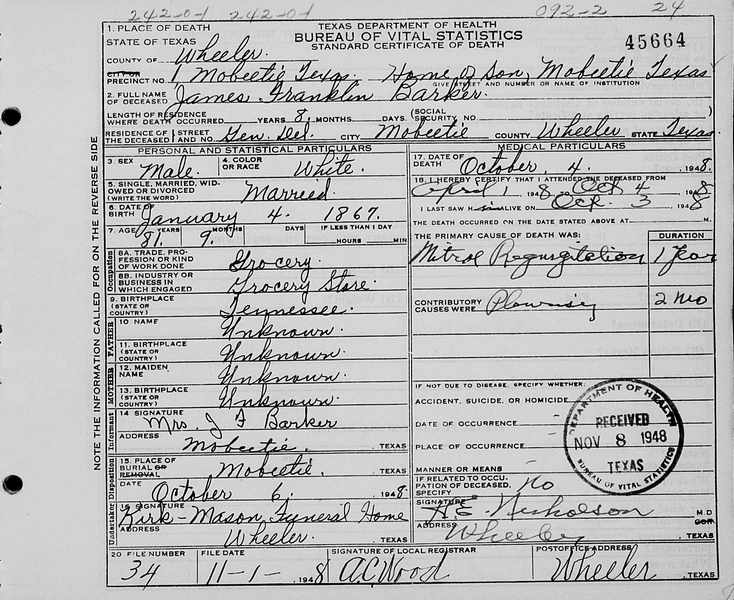 242-0-1 242-0-1 092-2 24
1. PLACE OF DEATH
TEXAS DEPARTMENT OF HEALTH
BUREAU OF VITAL STATISTICS
STANDARD CERTIFICATE OF DEATH
45664
STATE OF TEXAS
COUNTY OF Wheeler.
CITY OR PRECINCT NO. 1 Mobeetie Texas. Home of Son, Mobeetie Texas
GIVE STREET AND NUMBER OR NAME OF INSTITUTION
2. FULL NAME OF DECEASED James Franklin Barker.
LENGTH OF RESIDENCE WHERE DEATH OCCURRED YEARS 8 MONTHS DAYS (SOCIAL SECURITY NO.)
RESIDENCE OF THE DECEASED STREET AND NO. Gen. Del. CITY Mobeetie COUNTY Wheeler STATE Texas.
PERSONAL AND STATISTICAL PARTICULARS
3. SEX Male. 4. COLOR OR RACE White
5. SINGLE, MARRIED, WIDOWED OR DIVORCED (WRITE THE WORD) Marreed.
6. DATE OF BIRTH January 4. 1867.
7. AGE 81. YEARS 9. MONTHS DAYS IF LESS THAN 1 DAY HOURS MIN
Occupation
8A. TRADE, PROFESSION OR KIND OF WORK DONE Grocery.
8B. INDUSTRY OR BUSINESS IN WHICH ENGAGED Grocery Store.
9. BIRTHPLACE (STATE OR COUNTRY) Tennessee.
FATHER
10 NAME Unknown.
11. BIRTHPLACE (STATE OR COUNTRY) Unknown.
MOTHER
12. MAIDEN NAME Unknown.
13. BIRTHPLACE (STATE OR COUNTRY) Unknown.
Informant
14 SIGNATURE Mrs. J F Barker
ADDRESS Mobeetie. TEXAS
Disposition
15. PLACE OF BURIAL OR REMOVAL Mobeetie. TEXAS
DATE October 6. 1948.
Undertaker
16 SIGNATURE Kirk-Mason Funeral Home
ADDRESS Wheeler. TEXAS
MEDICAL PARTICULARS
17. DATE OF DEATH October 4. 1948.
18. I HEREBY CERTIFY THAT I ATTENDED THE DECEASED FROM
April 1 1948 TO Oct 4 1948
I LAST SAW H im ALIVE ON Oct. 3 1948
THE DEATH OCCURRED ON THE DATE STATED ABOVE AT M.
THE PRIMARY CAUSE OF DEATH WAS: DURATION
Mitral Regurgitation 1 Year
CONTRIBUTORY CAUSES WERE: 2 mo
IF NOT DUE TO DISEASE, SPECIFY WHETHER:
ACCIDENT, SUICIDE, OR HOMICIDE
DATE OF OCCURRENCE
PLACE OF OCCURRENCE
MANNER OR MEANS
IF RELATED TO OCCUPATION OF DECEASED, SPECIFY no
SIGNATURE H.E. Nicholson M.D
ADDRESS Wheeler TEXAS
DEPARTMENT OF HEALTH
RECEIVED
NOV 8 1948
TEXAS
BUREAU OF VITAL STATISTICS
20 FILE NUMBER 34 FILE DATE 11-1- 1948 SIGNATURE OF LOCAL REGISTRAR A.C. Wood POSTOFFICE ADDRESS Wheeler TEXAS
NOTE THE INFORMATION CALLED FOR ON THE REVERSE SIDE